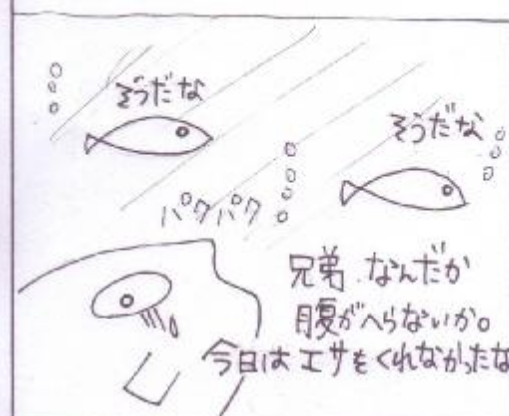 そうだな
そうだな
パクパク
兄弟.なんだか
腹がへらないか。
今日はエサをくれなかったな